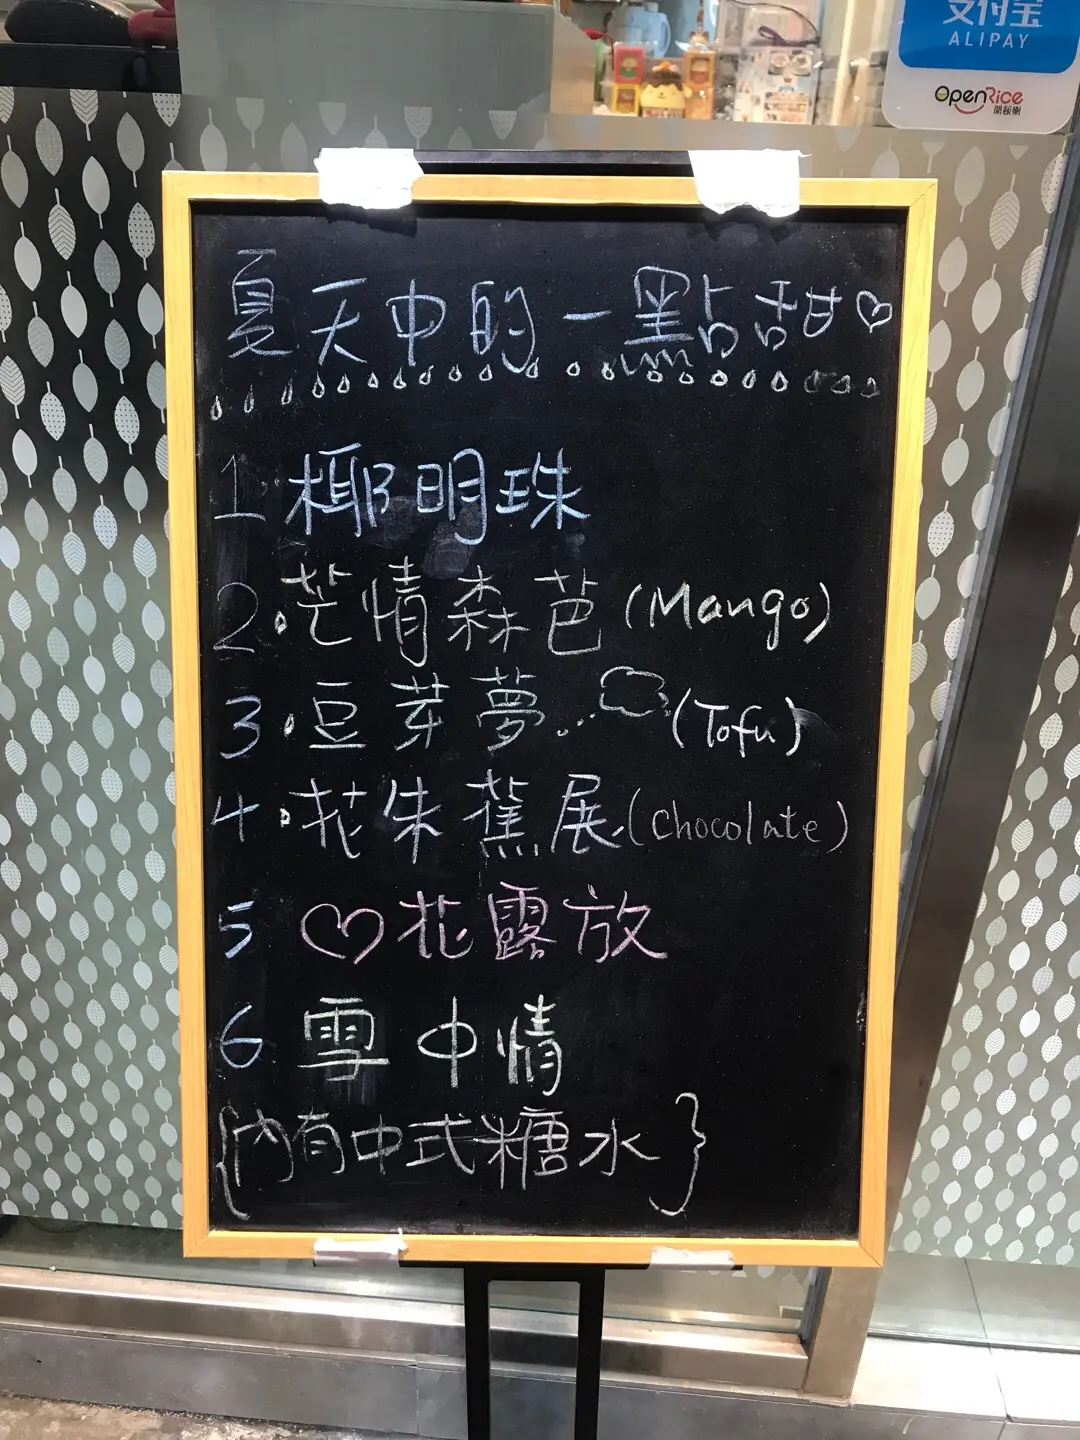 支付宝
ALIPAY
OpenRice
開飯喇
夏天中的一點甜♡
1. 椰明珠
2. 芒情森芭 (Mango)
3. 豆芽夢... (Tofu)
4. 花朱蕉展 (chocolate)
5 ♡花露放
6 雪中情
{內有中式糖水}